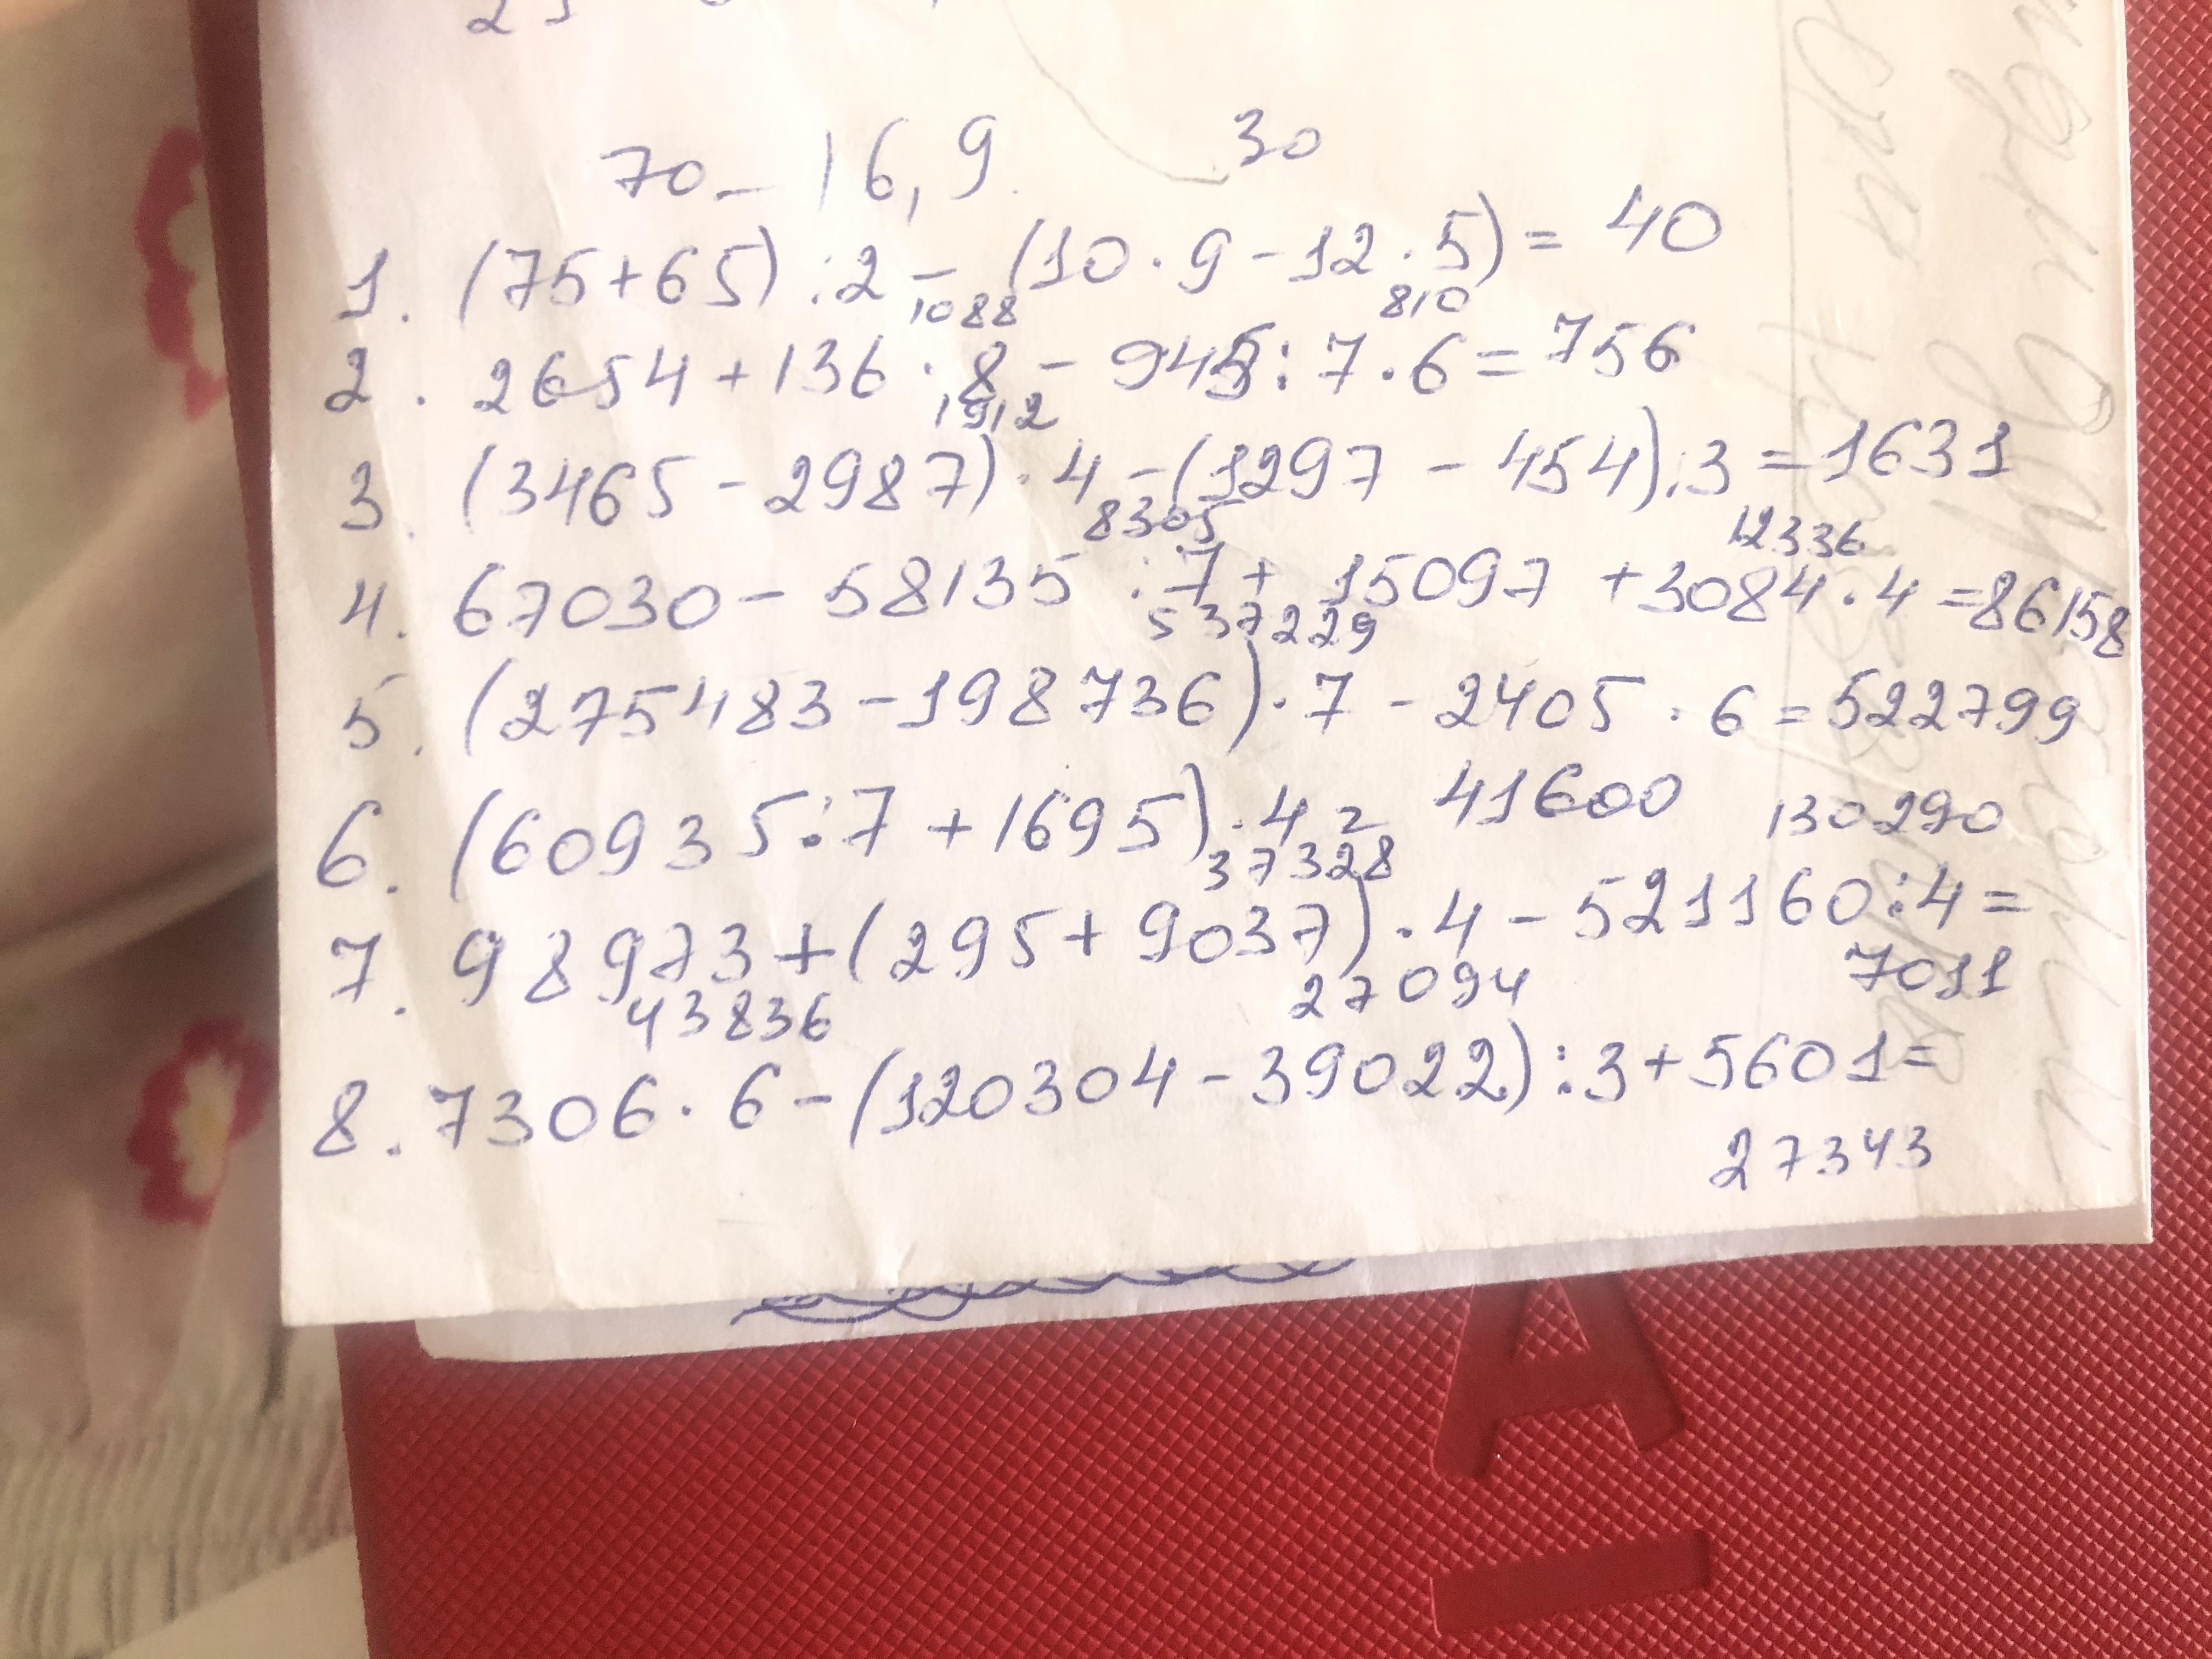 70 - 16,9 30
1. (75+65):2 - (10·9-12·5) = 40
1088 810
2. 2654+136·8 - 945:7·6 = 756
1912
3. (3465-2987)·4-(1297-454):3 = 1631
8305 12336
4. 67030-58135:7+15097+3084·4=86158
537229
5. (275483-198736)·7-2405·6=522799
6. (60935:7+1695)·4= 41600
37328 130290
7. 98973+(295+9037)·4-521160:4=
7011
43836 27094
8. 7306·6-(120304-39022):3+5601=
27343